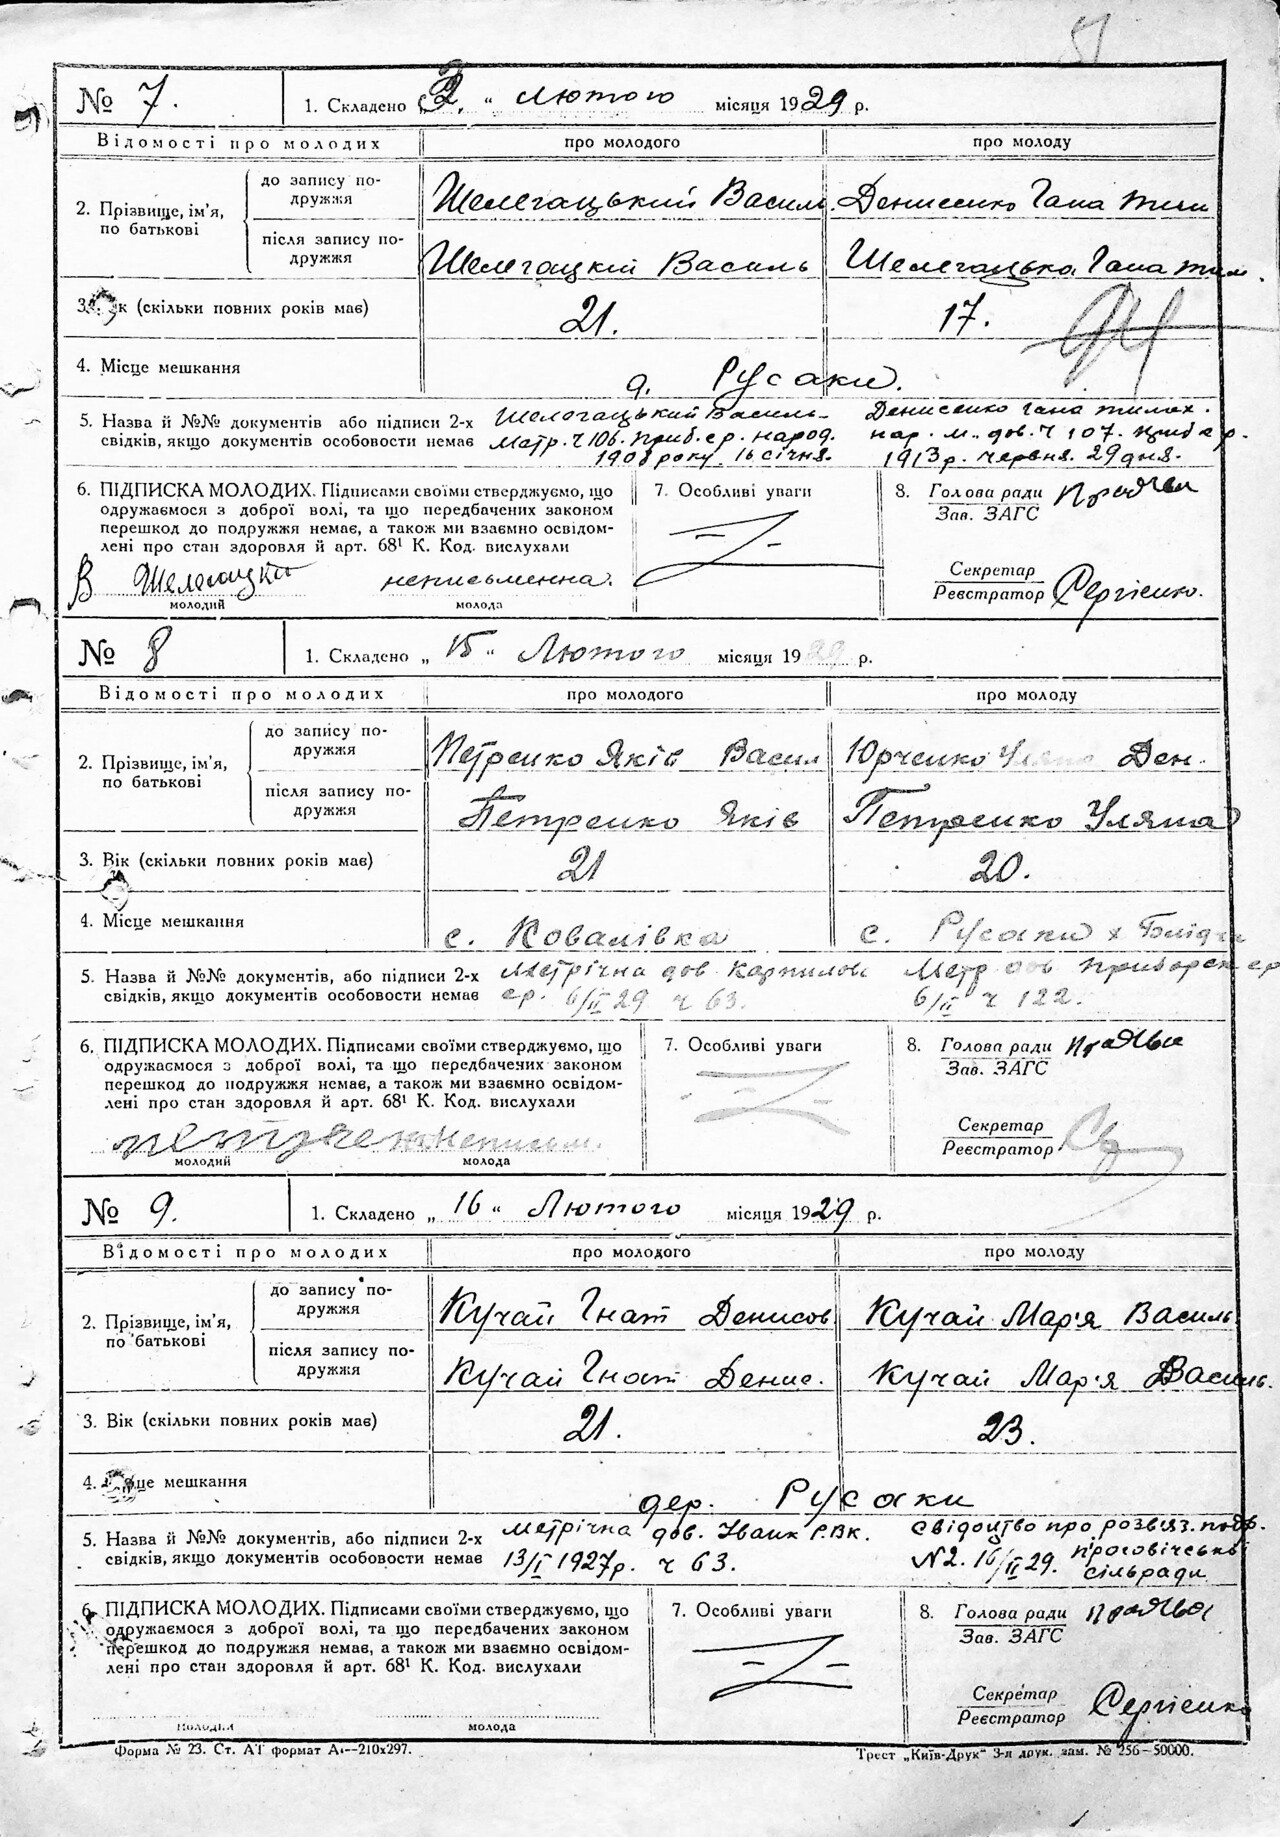 51
№ 7. 1. Складено „ 2. " Лютого місяця 1929 р.
Відомості про молодих про молодого про молоду
2. Прізвище, ім'я, по батькові
до запису подружжя Шелегацький Василь. Денисенко Гана Тим
після запису подружжя Шелегацкій Василь Шелегацька Гана Тим.
3. Вік (скільки повних років має) 21. 17.
4. Місце мешкання д. Русаки.
5. Назва й №№ документів або підписи 2-х Шелегацький Василь- Денисенко Гана Тимох.
свідків, якщо документів особовости немає Метр. ч 106. Приб. с р. народ. нар. м. дов. ч 107. Приб с р.
1908 року. 16 січня. 1913 р. червня. 29 дня.
6. ПІДПИСКА МОЛОДИХ. Підписами своїми стверджуємо, що 7. Особливі уваги 8. Голова ради
одружаємося з доброї волі, та що передбачених законом Зав. ЗАГС
перешкод до подружжя немає, а також ми взаємно освідом-
лені про стан здоровля й арт. 68¹ К. Код. вислухали
В Шелегацки неписьменна. Секретар
молодий молода Реєстратор Сергієнко.
№ 8 1. Складено „ 15 " Лютого місяця 1929 р.
Відомості про молодих про молодого про молоду
2. Прізвище, ім'я, по батькові
до запису подружжя Петренко Яків Васил Юрченко Уляна Ден.
після запису подружжя Петренко Яків Петренко Уляна
3. Вік (скільки повних років має) 21 20.
4. Місце мешкання с. Ковалівка с. Русаки х
5. Назва й №№ документів, або підписи 2-х Метрічна дов Карпилов Метр дов Приборск ср
свідків, якщо документів особовости немає ср. 6/II 29 ч 63. 6/II ч 122.
6. ПІДПИСКА МОЛОДИХ. Підписами своїми стверджуємо, що 7. Особливі уваги 8. Голова ради
одружаємося з доброї волі, та що передбачених законом Зав. ЗАГС
перешкод до подружжя немає, а також ми взаємно освідом-
лені про стан здоровля й арт. 68¹ К. Код. вислухали
Секретар
молодий молода Реєстратор
№ 9. 1. Складено „ 16 " Лютого місяця 1929 р.
Відомості про молодих про молодого про молоду
2. Прізвище, ім'я, по батькові
до запису подружжя Кучай Гнат Денисов Кучай Мар'я Василь.
після запису подружжя Кучай Гнат Денис. Кучай Мар'я Василь.
3. Вік (скільки повних років має) 21. 23.
4. Місце мешкання дер. Русаки
5. Назва й №№ документів, або підписи 2-х Метрічна дов. Іванк Р.В.К. Свідоцтво про розвяз. подр.
свідків, якщо документів особовости немає 13/I 1927 р. ч 63. N2. 16/II 29. сільради
6. ПІДПИСКА МОЛОДИХ. Підписами своїми стверджуємо, що 7. Особливі уваги 8. Голова ради
одружаємося з доброї волі, та що передбачених законом Зав. ЗАГС
перешкод до подружжя немає, а також ми взаємно освідом-
лені про стан здоровля й арт. 68¹ К. Код. вислухали
Секретар
молодий молода Реєстратор Сергієнко
Форма № 23. Ст. А1 формат А4—210x297. Трест „Київ-Друк" 3-я друк. зам. № 256—50000.